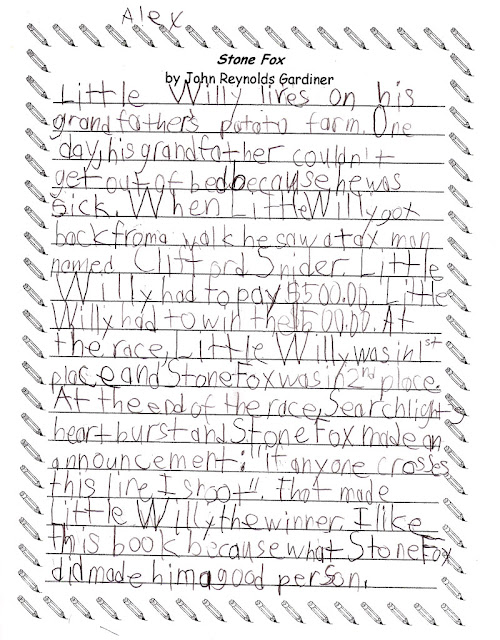 Alex
Stone Fox
by John Reynolds Gardiner
Little Willy lives on his
grandfather's potato farm. One
day, his grandfather couldn't
get out of bed because he was
sick. When Little Willy got
back from a walk he saw a tax man
named Clifford Snider. Little
Willy had to pay $500.00. Little
Willy had to win the $500.00. At
the race, Little Willy was in 1st
place and Stone Fox was in 2nd place.
At the end of the race, Searchlight,
heart burst and Stone Fox made an
announcement: "If anyone crosses
this line, I shoot". That made
Little Willy the winner. I like
this book because what Stone Fox
did made him a good person.